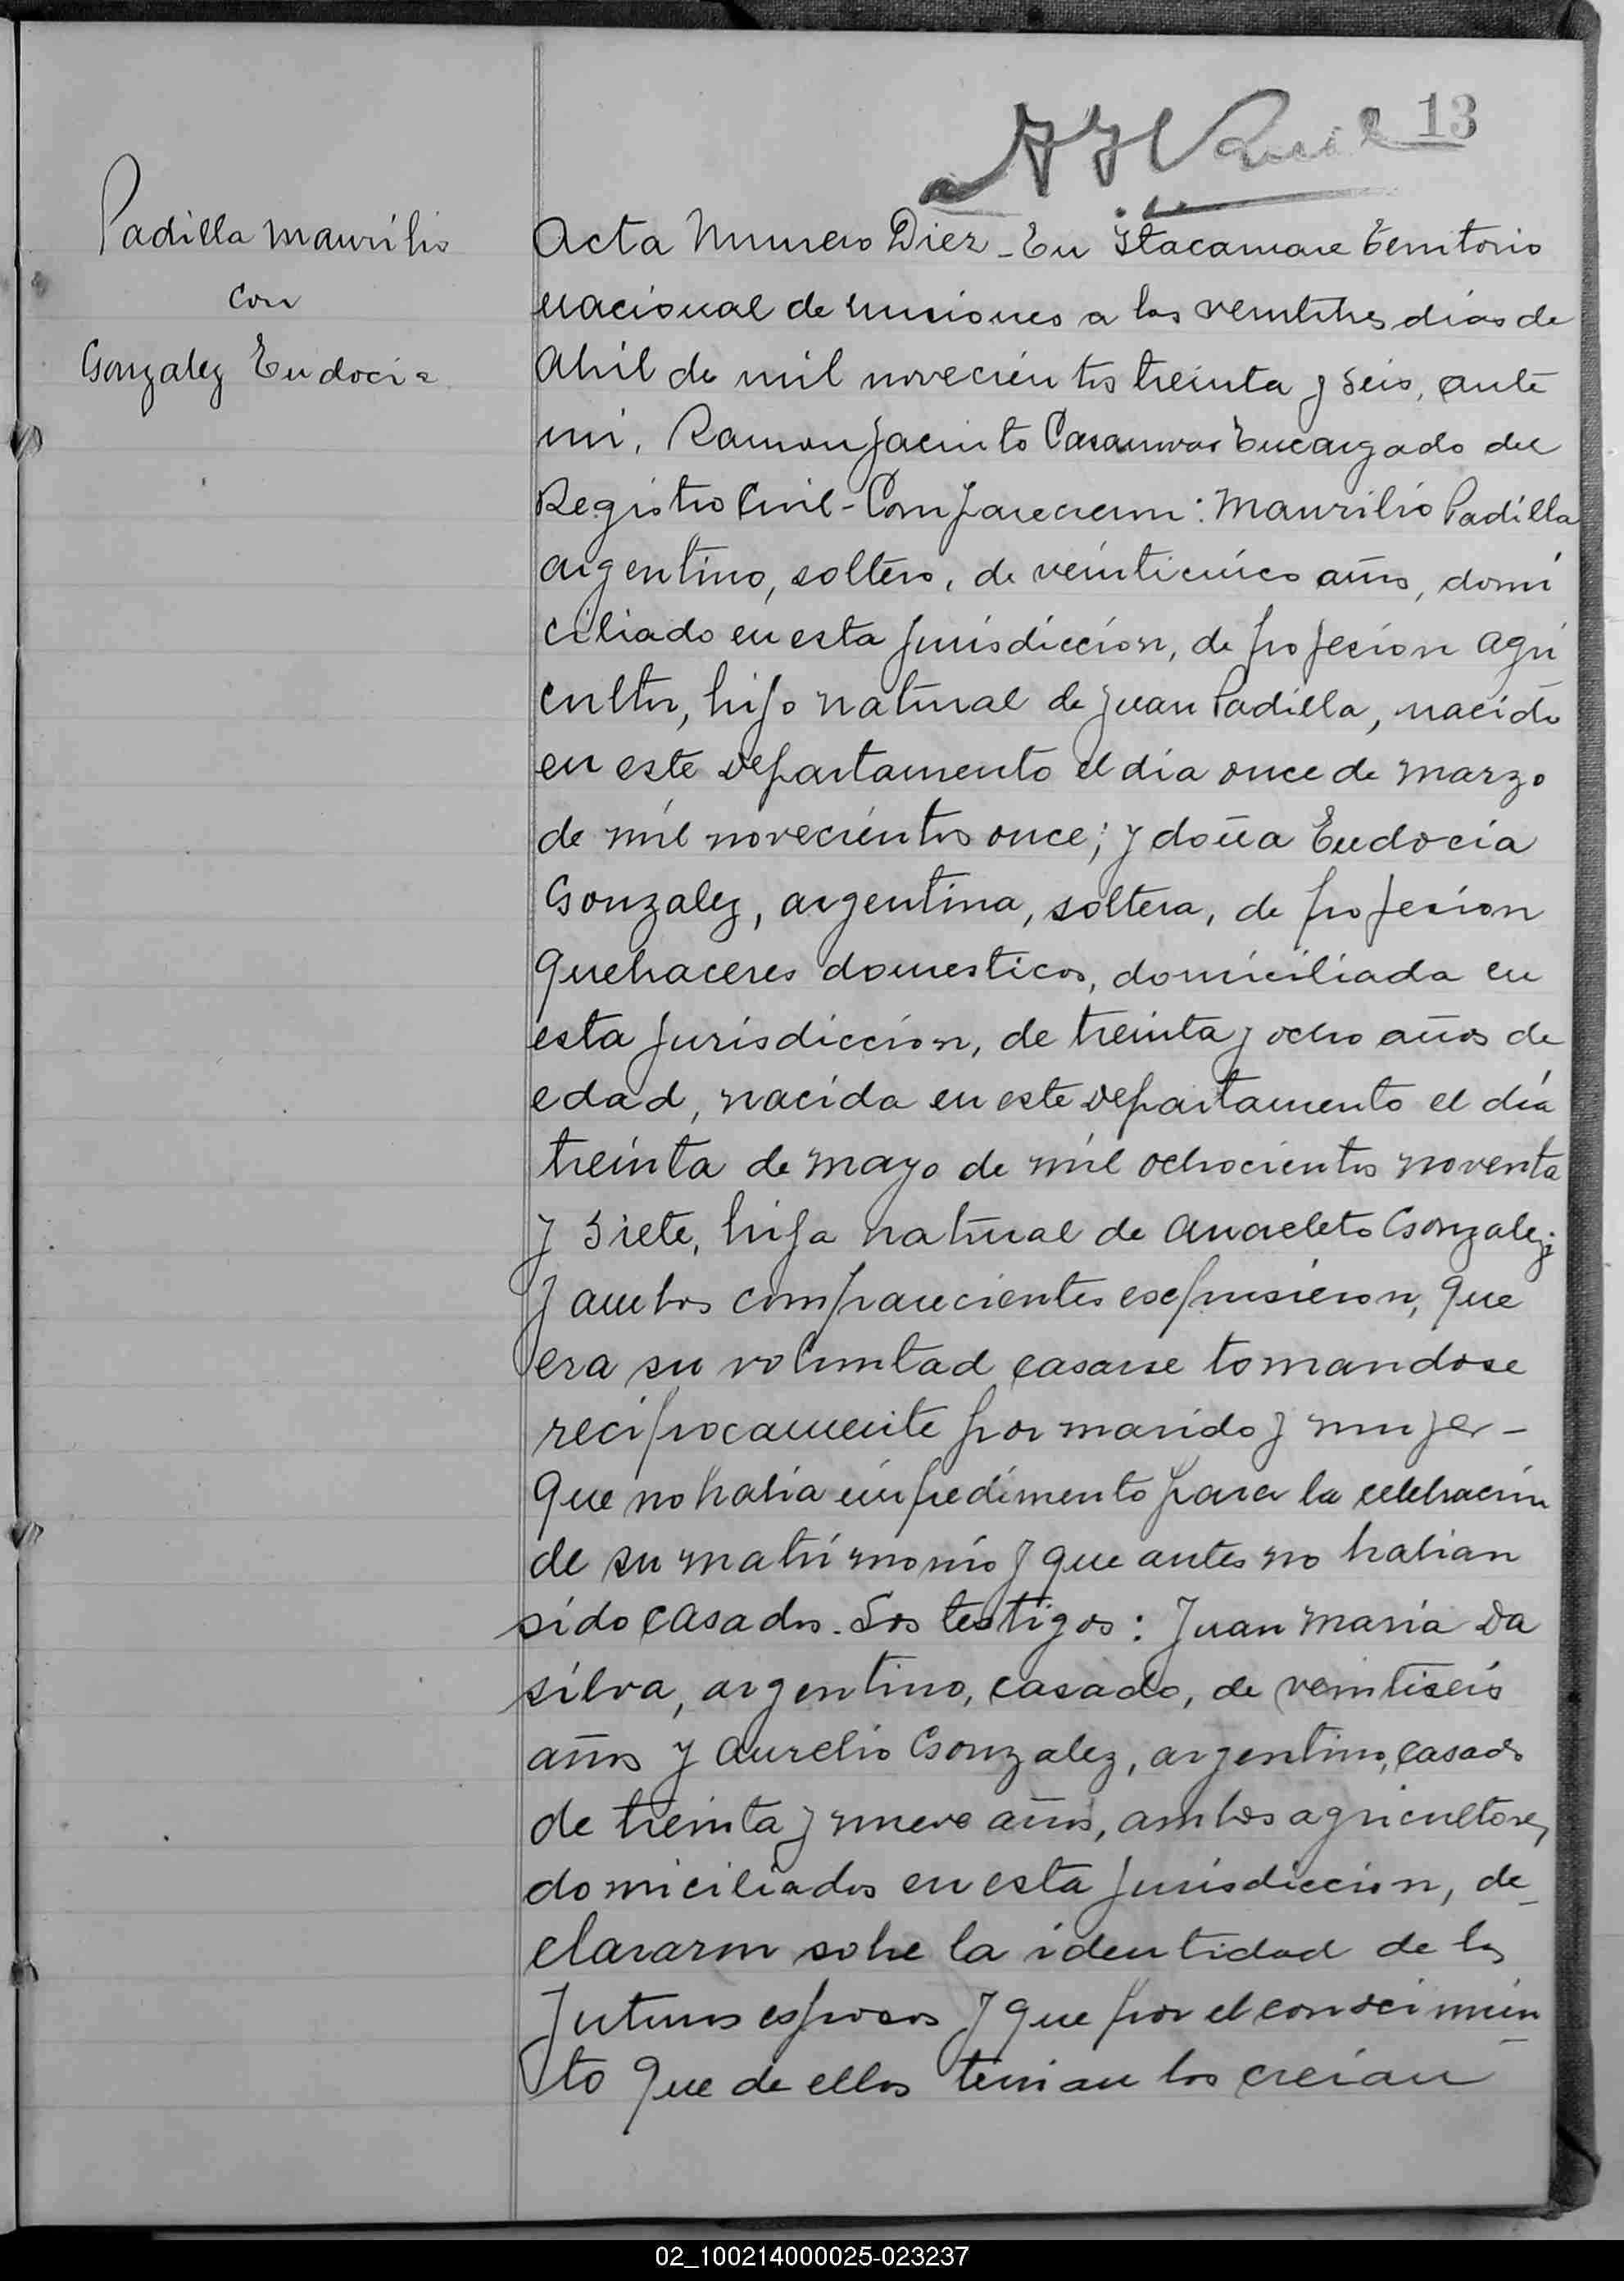 13
Padilla Maurilio
con
Gonzalez Eudocia
Acta Numero Diez - En Itacaruare territorio
nacional de misiones a los veintitres dias de
Abril de mil novecientos treinta y seis, ante
mi, Ramon Jacinto Encargado del
Registro Civil - Comparecieron: Maurilio Padilla
argentino, soltero, de veinticinco años, domi
ciliado en esta jurisdiccion, de profesion agri
cultor, hijo natural de Juan Padilla, nacido
en este departamento el dia once de marzo
de mil novecientos once; y doña Eudocia
Gonzalez, argentina, soltera, de profesion
quehaceres domesticos, domiciliada en
esta jurisdiccion, de treinta y ocho años de
edad, nacida en este departamento el dia
treinta de mayo de mil ochocientos noventa
y siete, hija natural de Anacleto Gonzalez;
y ambos comparecientes espusieron, que
era su voluntad casarse tomandose
reciprocamente por marido y mujer -
Que no habia impedimento para la celebracion
de su matrimonio y que antes no habian
sido casados. Los testigos: Juan Maria Da
silva, argentino, casado, de veintiseis
años y Aurelio Gonzalez, argentino, casado
de treinta y nueve años, ambos agricultores,
domiciliados en esta jurisdiccion, de
clararon sobre la identidad de los
futuros esposos y que por el conocimien
to que de ellos tenian los creian
02_100214000025-023237